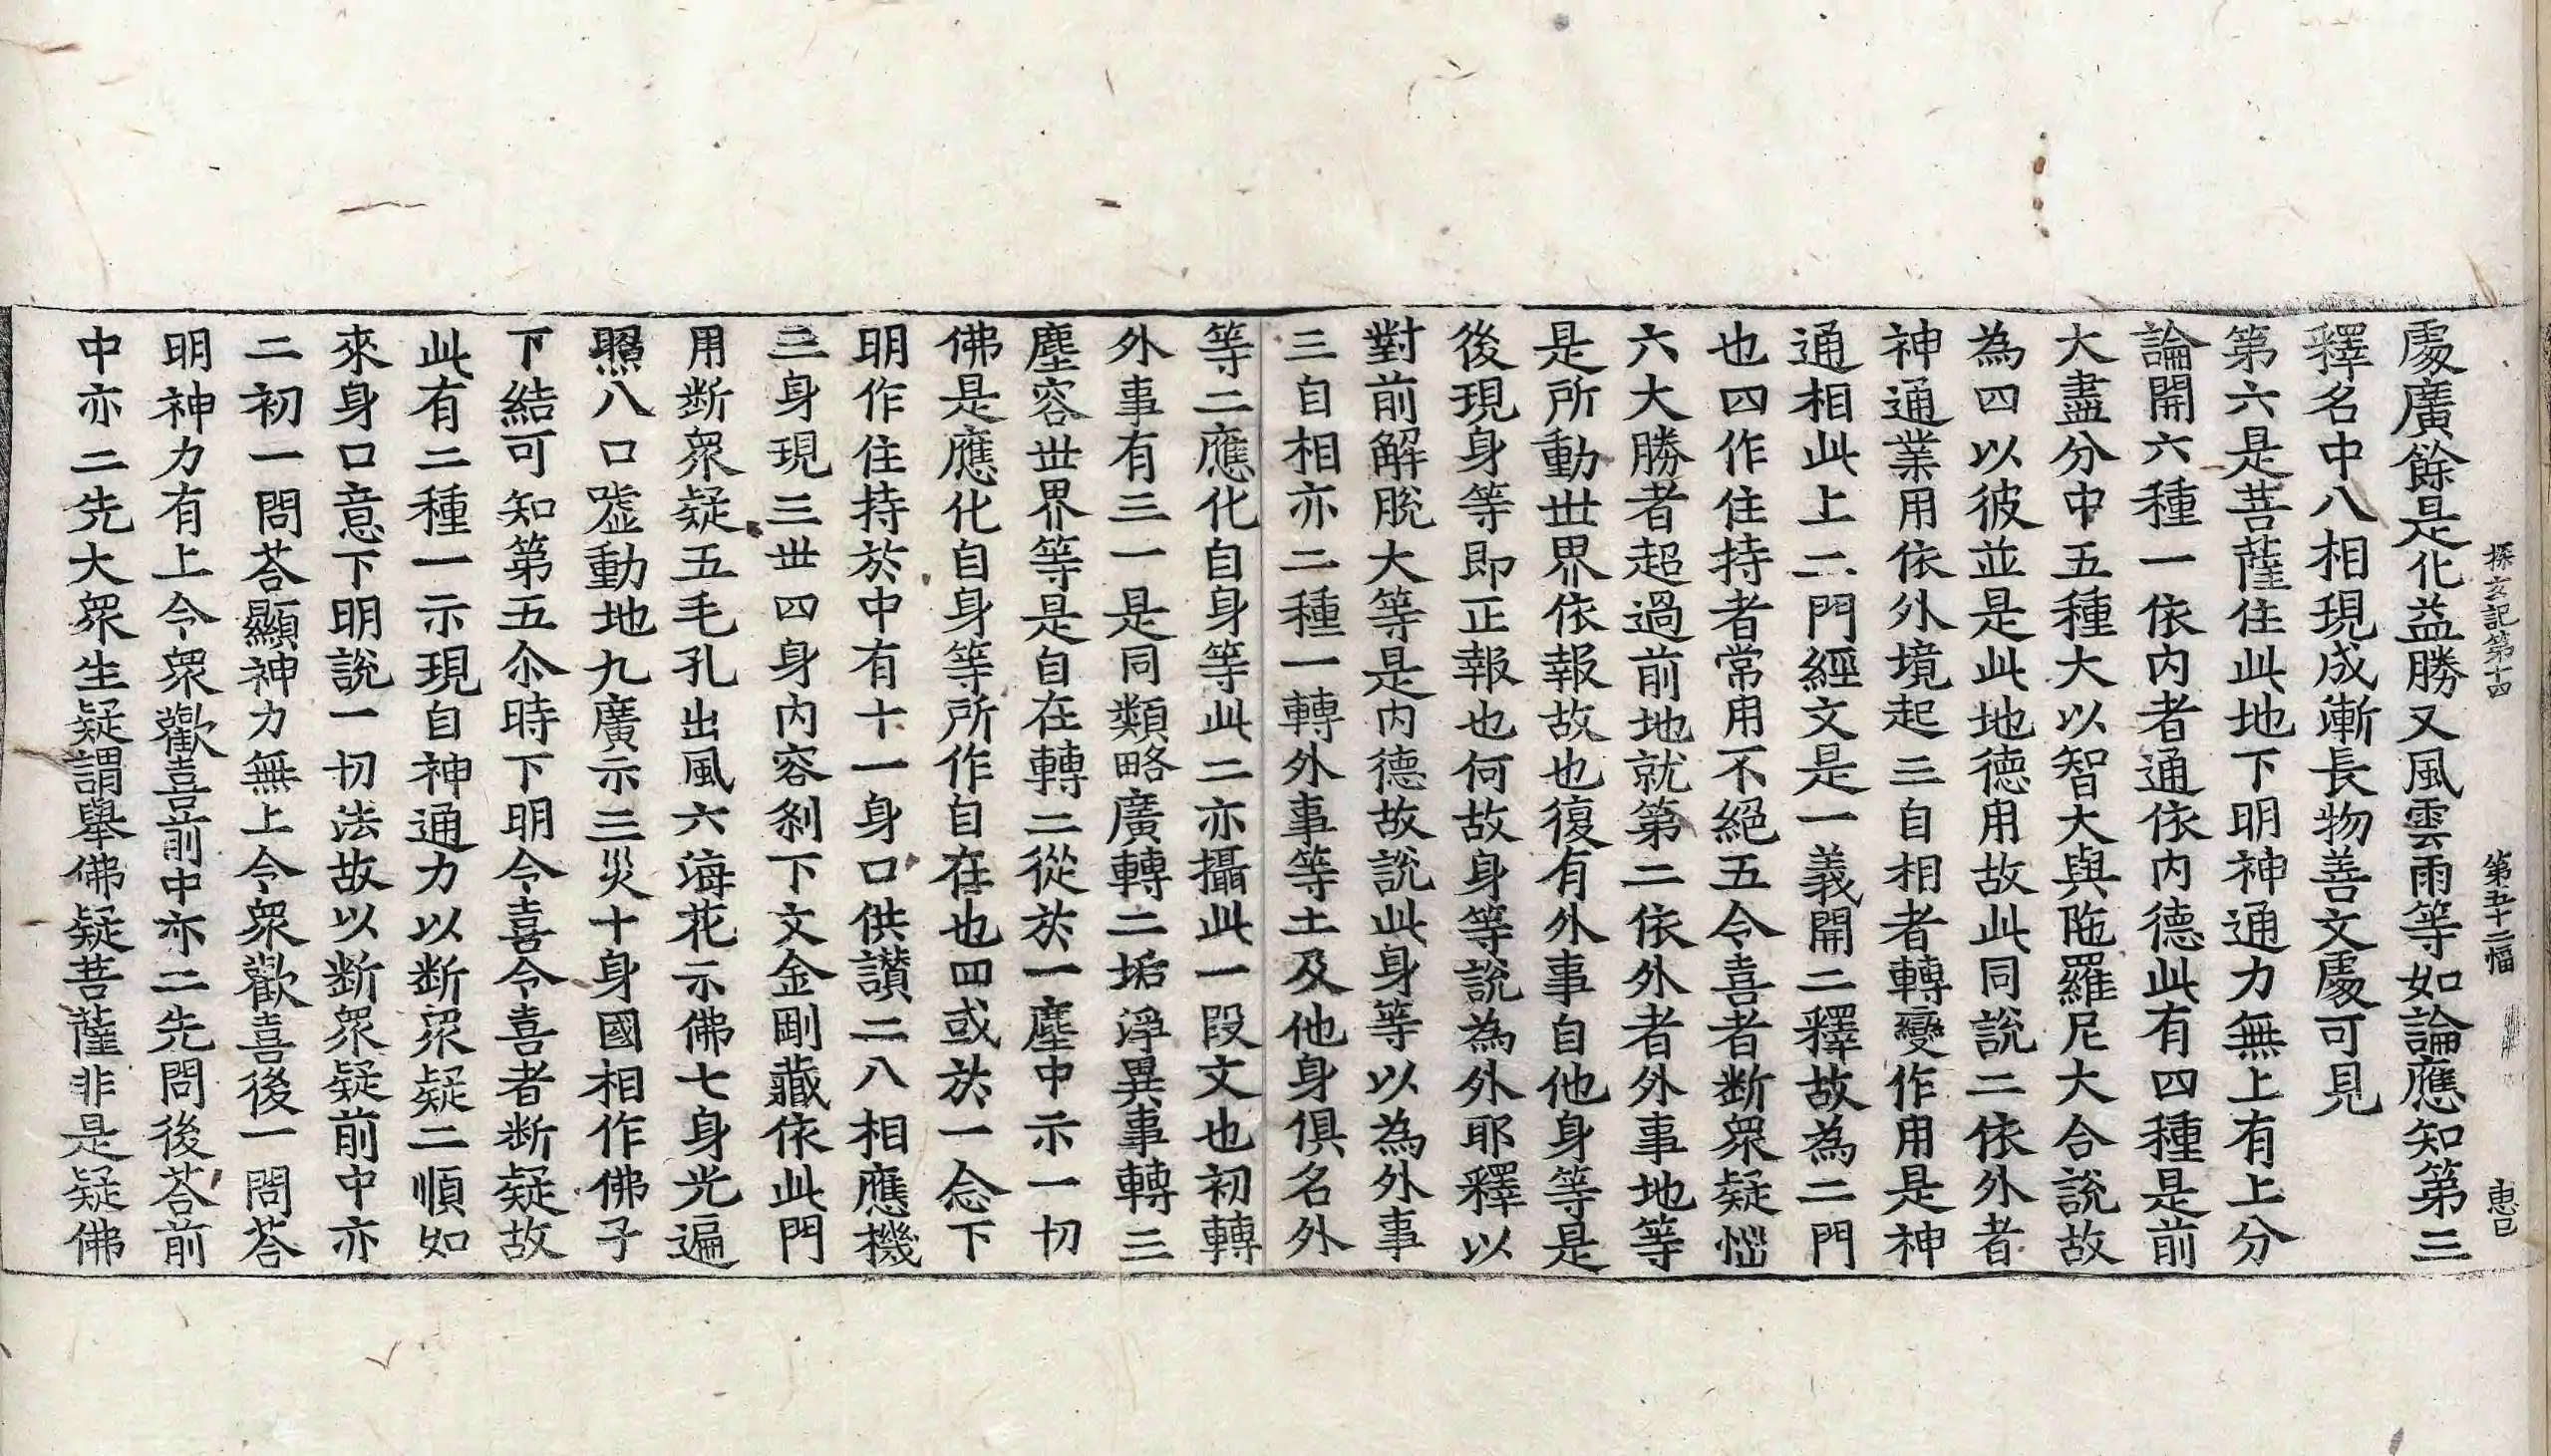 探玄記第十四　第五十二幅　惠已
處廣餘是化益勝又風雲雨等如論應知第三
釋名中八相現成漸長物善文處可見
第六是菩薩住此地下明神通力無上有上分
論開六種一依內者通依內德此有四種是前
大盡分中五種大以智大與陁羅尼大合說故
為四以彼並是此地德用故此同說二依外者
神通業用依外境起三自相者轉變作用是神
通相此上二門經文是一義開二釋故為二門
也四作住持者常用不絕五令喜者斷眾疑惱
六大勝者超過前地就第二依外者外事地等
是所動世界依報故也復有外事自他身等是
後現身等即正報也何故身等說為外耶釋以
對前解脫大等是內德故說此身等以為外事
三自相亦二種一轉外事等土及他身俱名外
等二應化自身等此二亦攝此一段文也初轉
外事有三一是同類略廣轉二垢淨異事轉三
塵容世界等是自在轉二從於一塵中示一切
佛是應化自身等所作自在也四或於一念下
明作住持於中有十一身口供讚二八相應機
三身現三世四身內容剎下文金剛藏依此門
用斷眾疑五毛孔出風六海花示佛七身光遍
照八口噓動地九廣示三災十身國相作佛子
下結可知第五尒時下明令喜令喜者斷疑故
此有二種一示現自神通力以斷眾疑二順如
來身口意下明說一切法故以斷眾疑前中亦
二初一問荅顯神力無上令眾歡喜後一問荅
明神力有上令眾歡喜前中亦二先問後荅前
中亦二先大眾生疑謂舉佛疑菩薩非是疑佛